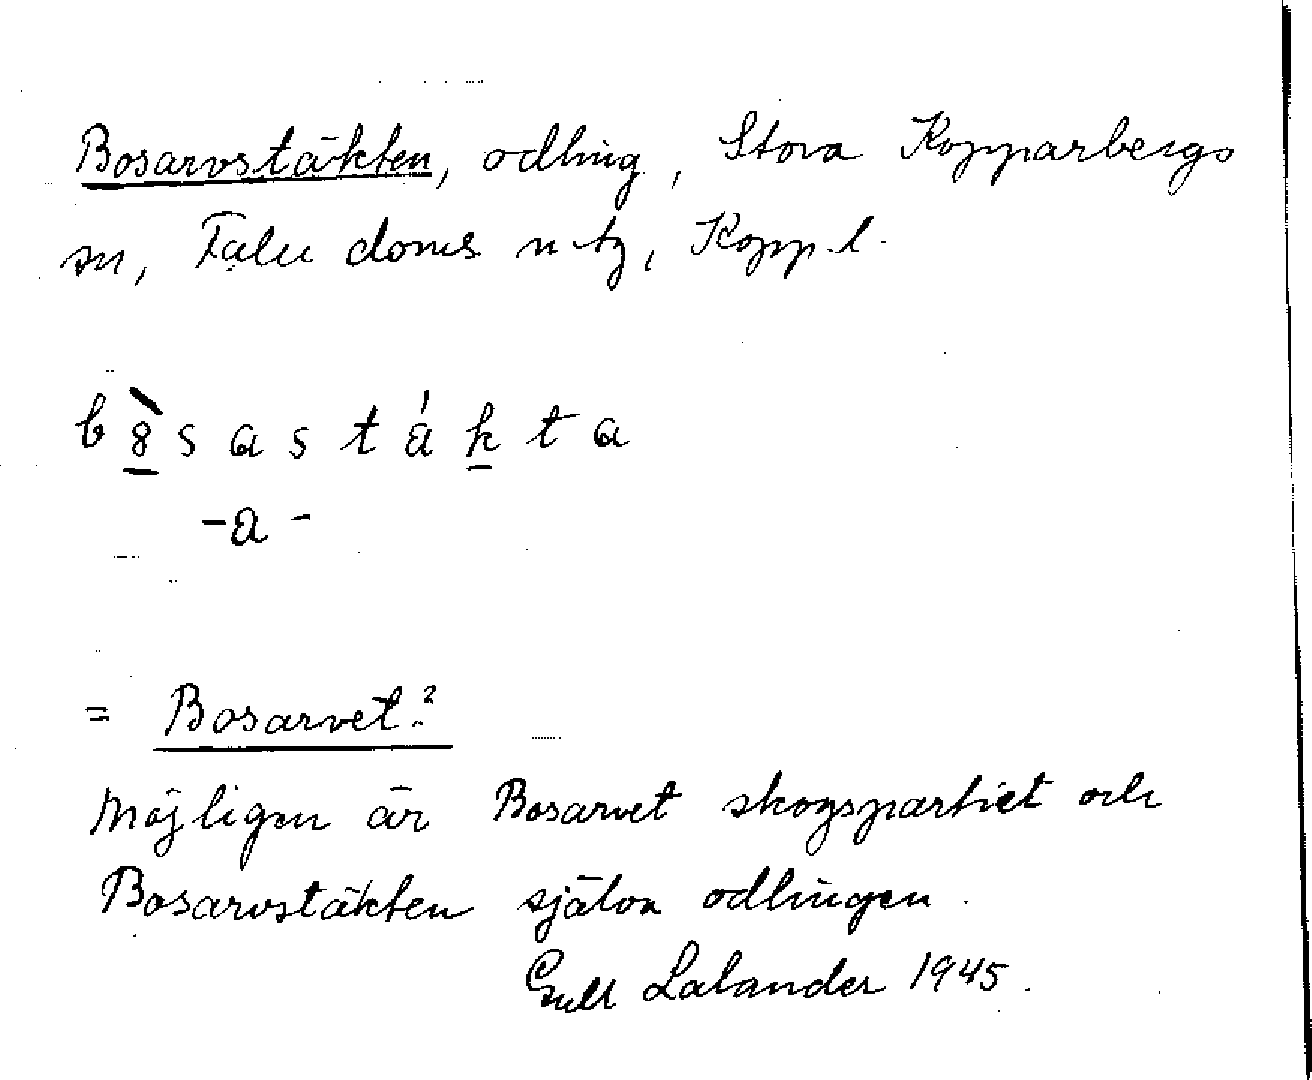 Bosarvstäkten, odling, Stora Kopparbergs
sn, Falu doms n tg, Kopp.l.
b 8̀ s a s t á k t a
-a-
= Bosarvet?
Möjligen är Bosarvet skogspartiet och
Bosarvstäkten själva odlingen.
Lalander 1945.